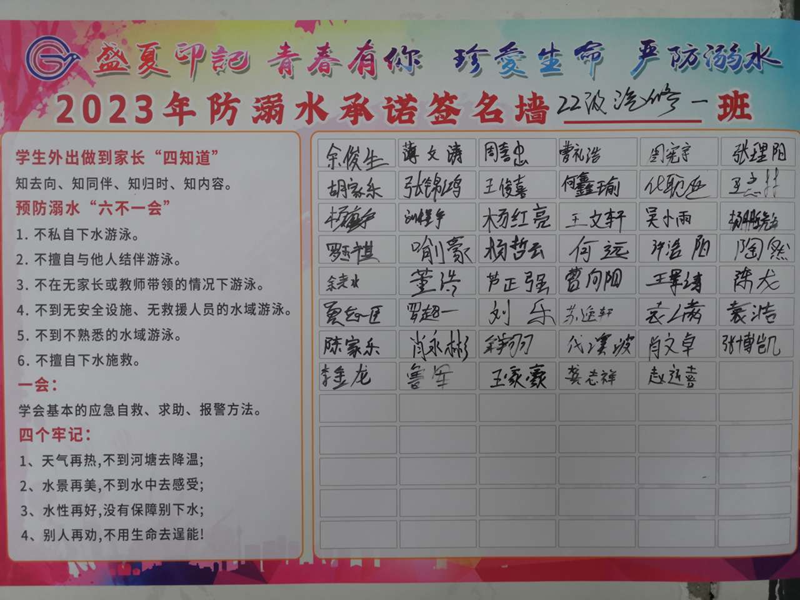 盛夏印記 青春有你 珍愛生命 严防溺水
2023年防溺水承诺签名墙 22级汽修一班
学生外出做到家长“四知道”
知去向、知同伴、知归时、知内容。
预防溺水“六不一会”
1. 不私自下水游泳。
2. 不擅自与他人结伴游泳。
3. 不在无家长或教师带领的情况下游泳。
4. 不到无安全设施、无救援人员的水域游泳。
5. 不到不熟悉的水域游泳。
6. 不擅自下水施救。
一会：
学会基本的应急自救、求助、报警方法。
四个牢记：
1、天气再热,不到河塘去降温;
2、水景再美,不到水中去感受;
3、水性再好,没有保障别下水;
4、别人再劝,不用生命去逞能!
余俊生 蒋文涛 周喜忠 曹礼浩 张理阳
胡家乐 张锦鸿 王俊喜 何鑫瑜
杨红亮 王文轩 吴小雨
喻豪 杨哲云 何远 许浩阳 陶然
董浩 芦正强 曹向阳 陈龙
刘乐 袁浩
陈家乐 肖永彬 肖文卓 张博凯
李金龙 鲁军 王家豪 龚志祥